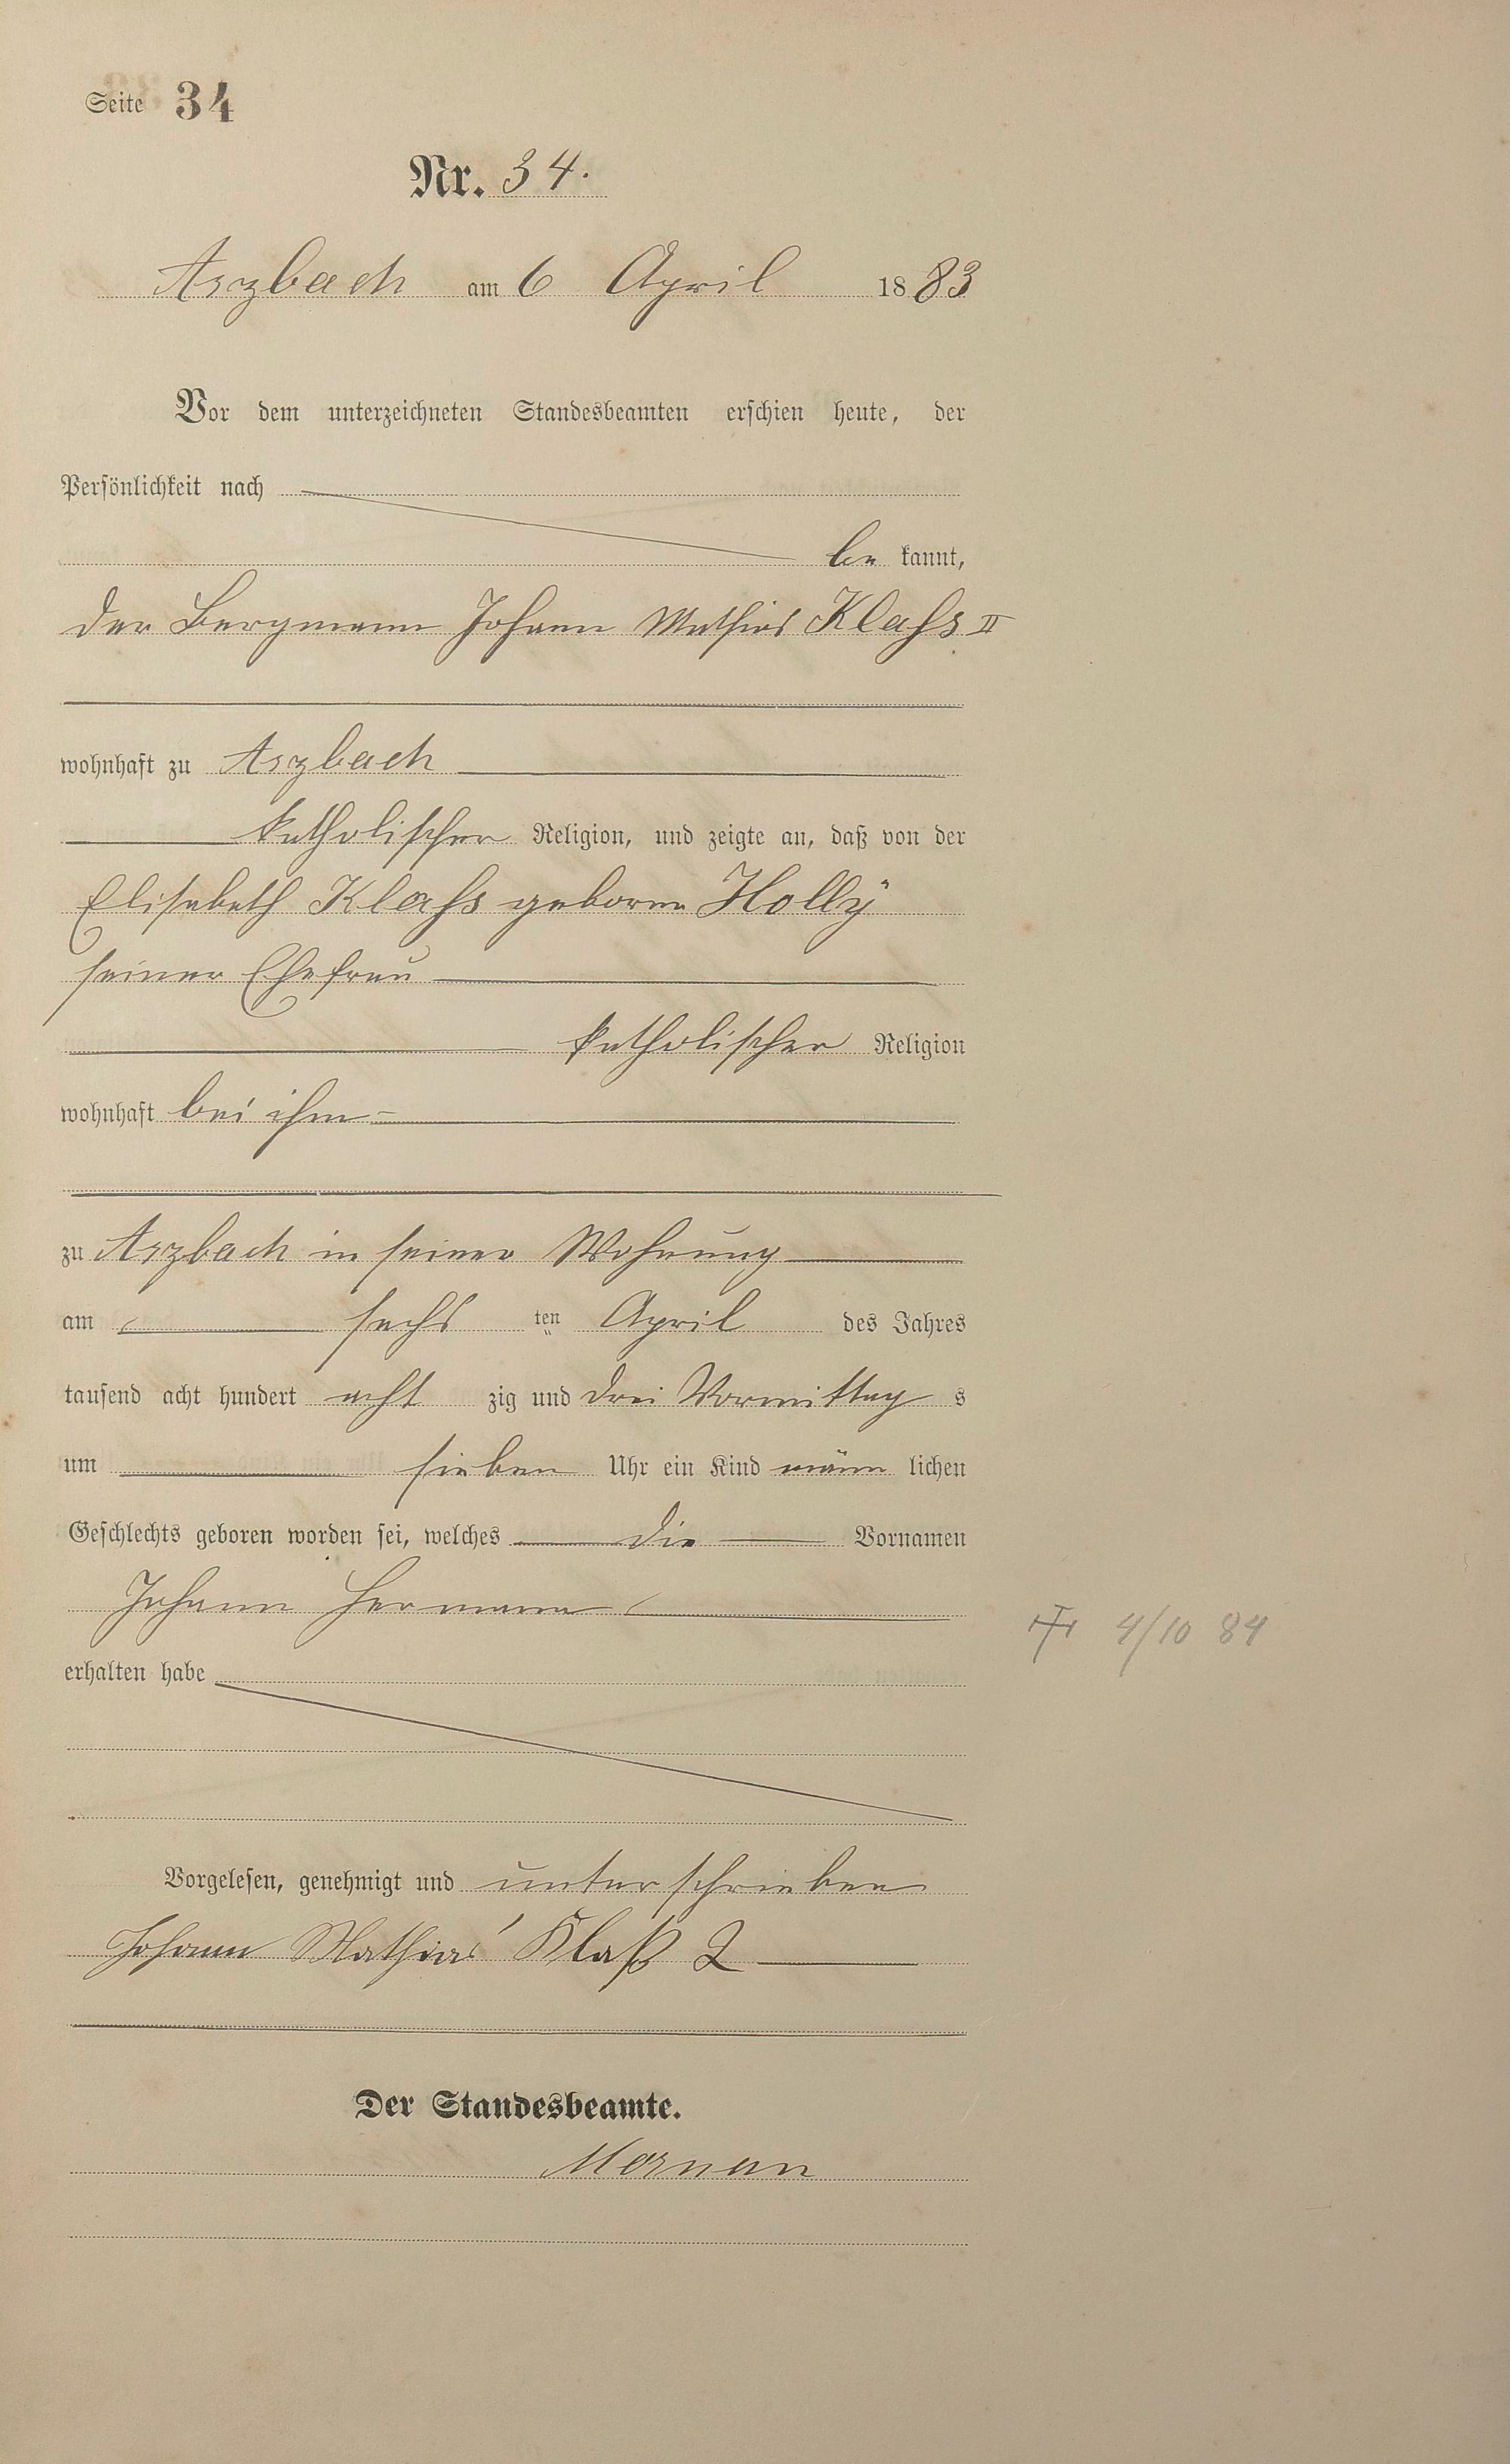 Seite 34
Nr. 34.
Arzbach am 6 April 1883
Vor dem unterzeichneten Standesbeamten erschien heute, der
Persönlichkeit nach
be kannt,
der Bergmann Johann Mathias Klahs II
wohnhaft zu Arzbach
katholischer Religion, und zeigte an, daß von der
Elisabeth Klahs geborne Holly
seiner Ehefrau
katholischer Religion
wohnhaft bei ihm
zu Arzbach in seiner Wohnung
am sechs ten April des Jahres
tausend acht hundert acht zig und drei Vormittag s
um sieben Uhr ein Kind männ lichen
Geschlechts geboren worden sei, welches die Vornamen
Johann Hermann
erhalten habe
† 4/10 84
Vorgelesen, genehmigt und unterschrieben
Johann Mathias Klaß 2
Der Standesbeamte.